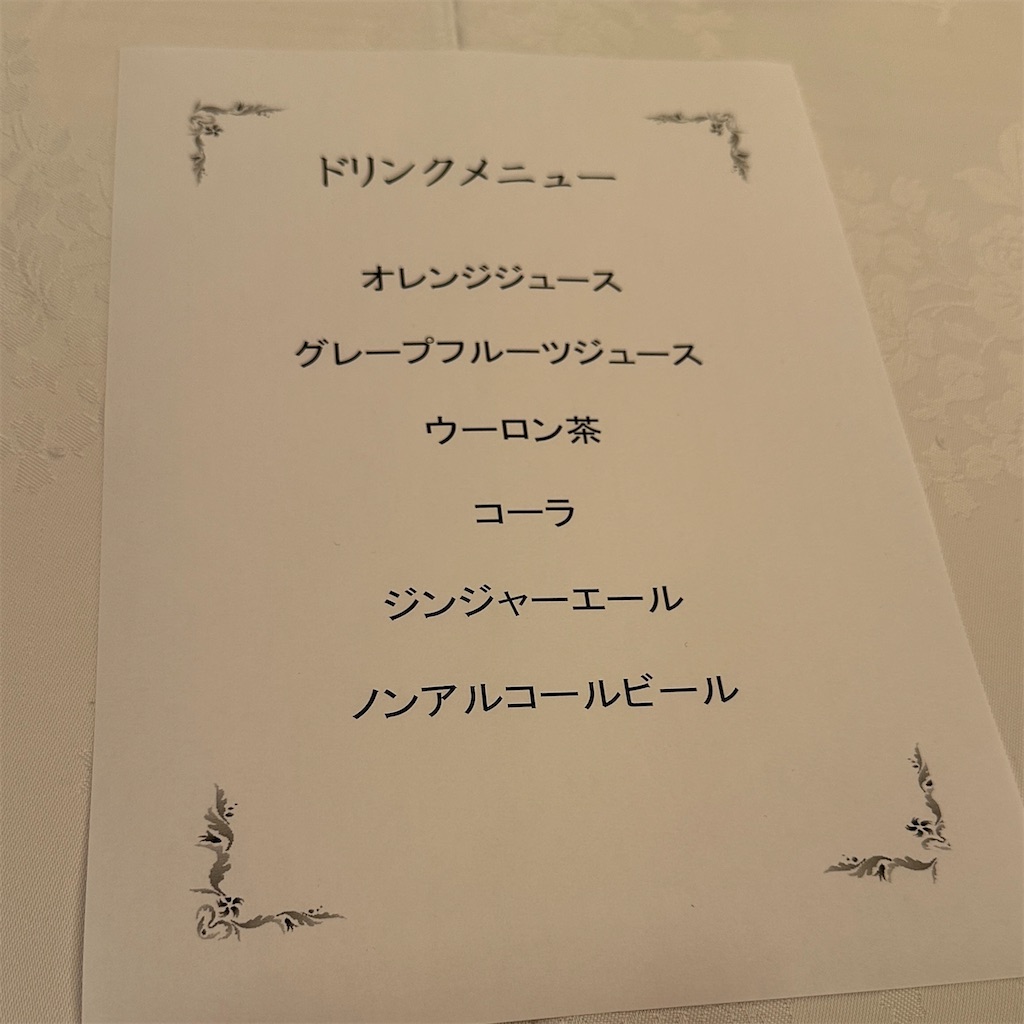 ドリンクメニュー
オレンジジュース
グレープフルーツジュース
ウーロン茶
コーラ
ジンジャーエール
ノンアルコールビール